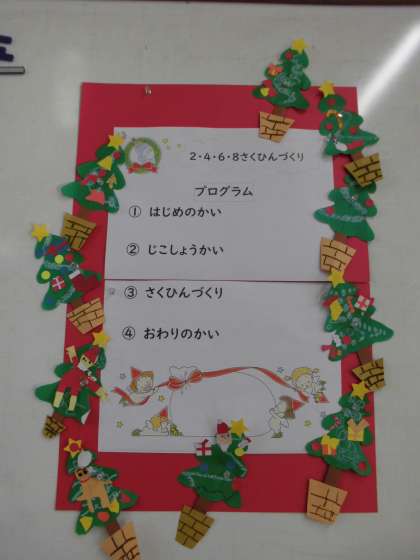 2・4・6・8さくひんづくり
プログラム
① はじめのかい
② じこしょうかい
③ さくひんづくり
④ おわりのかい